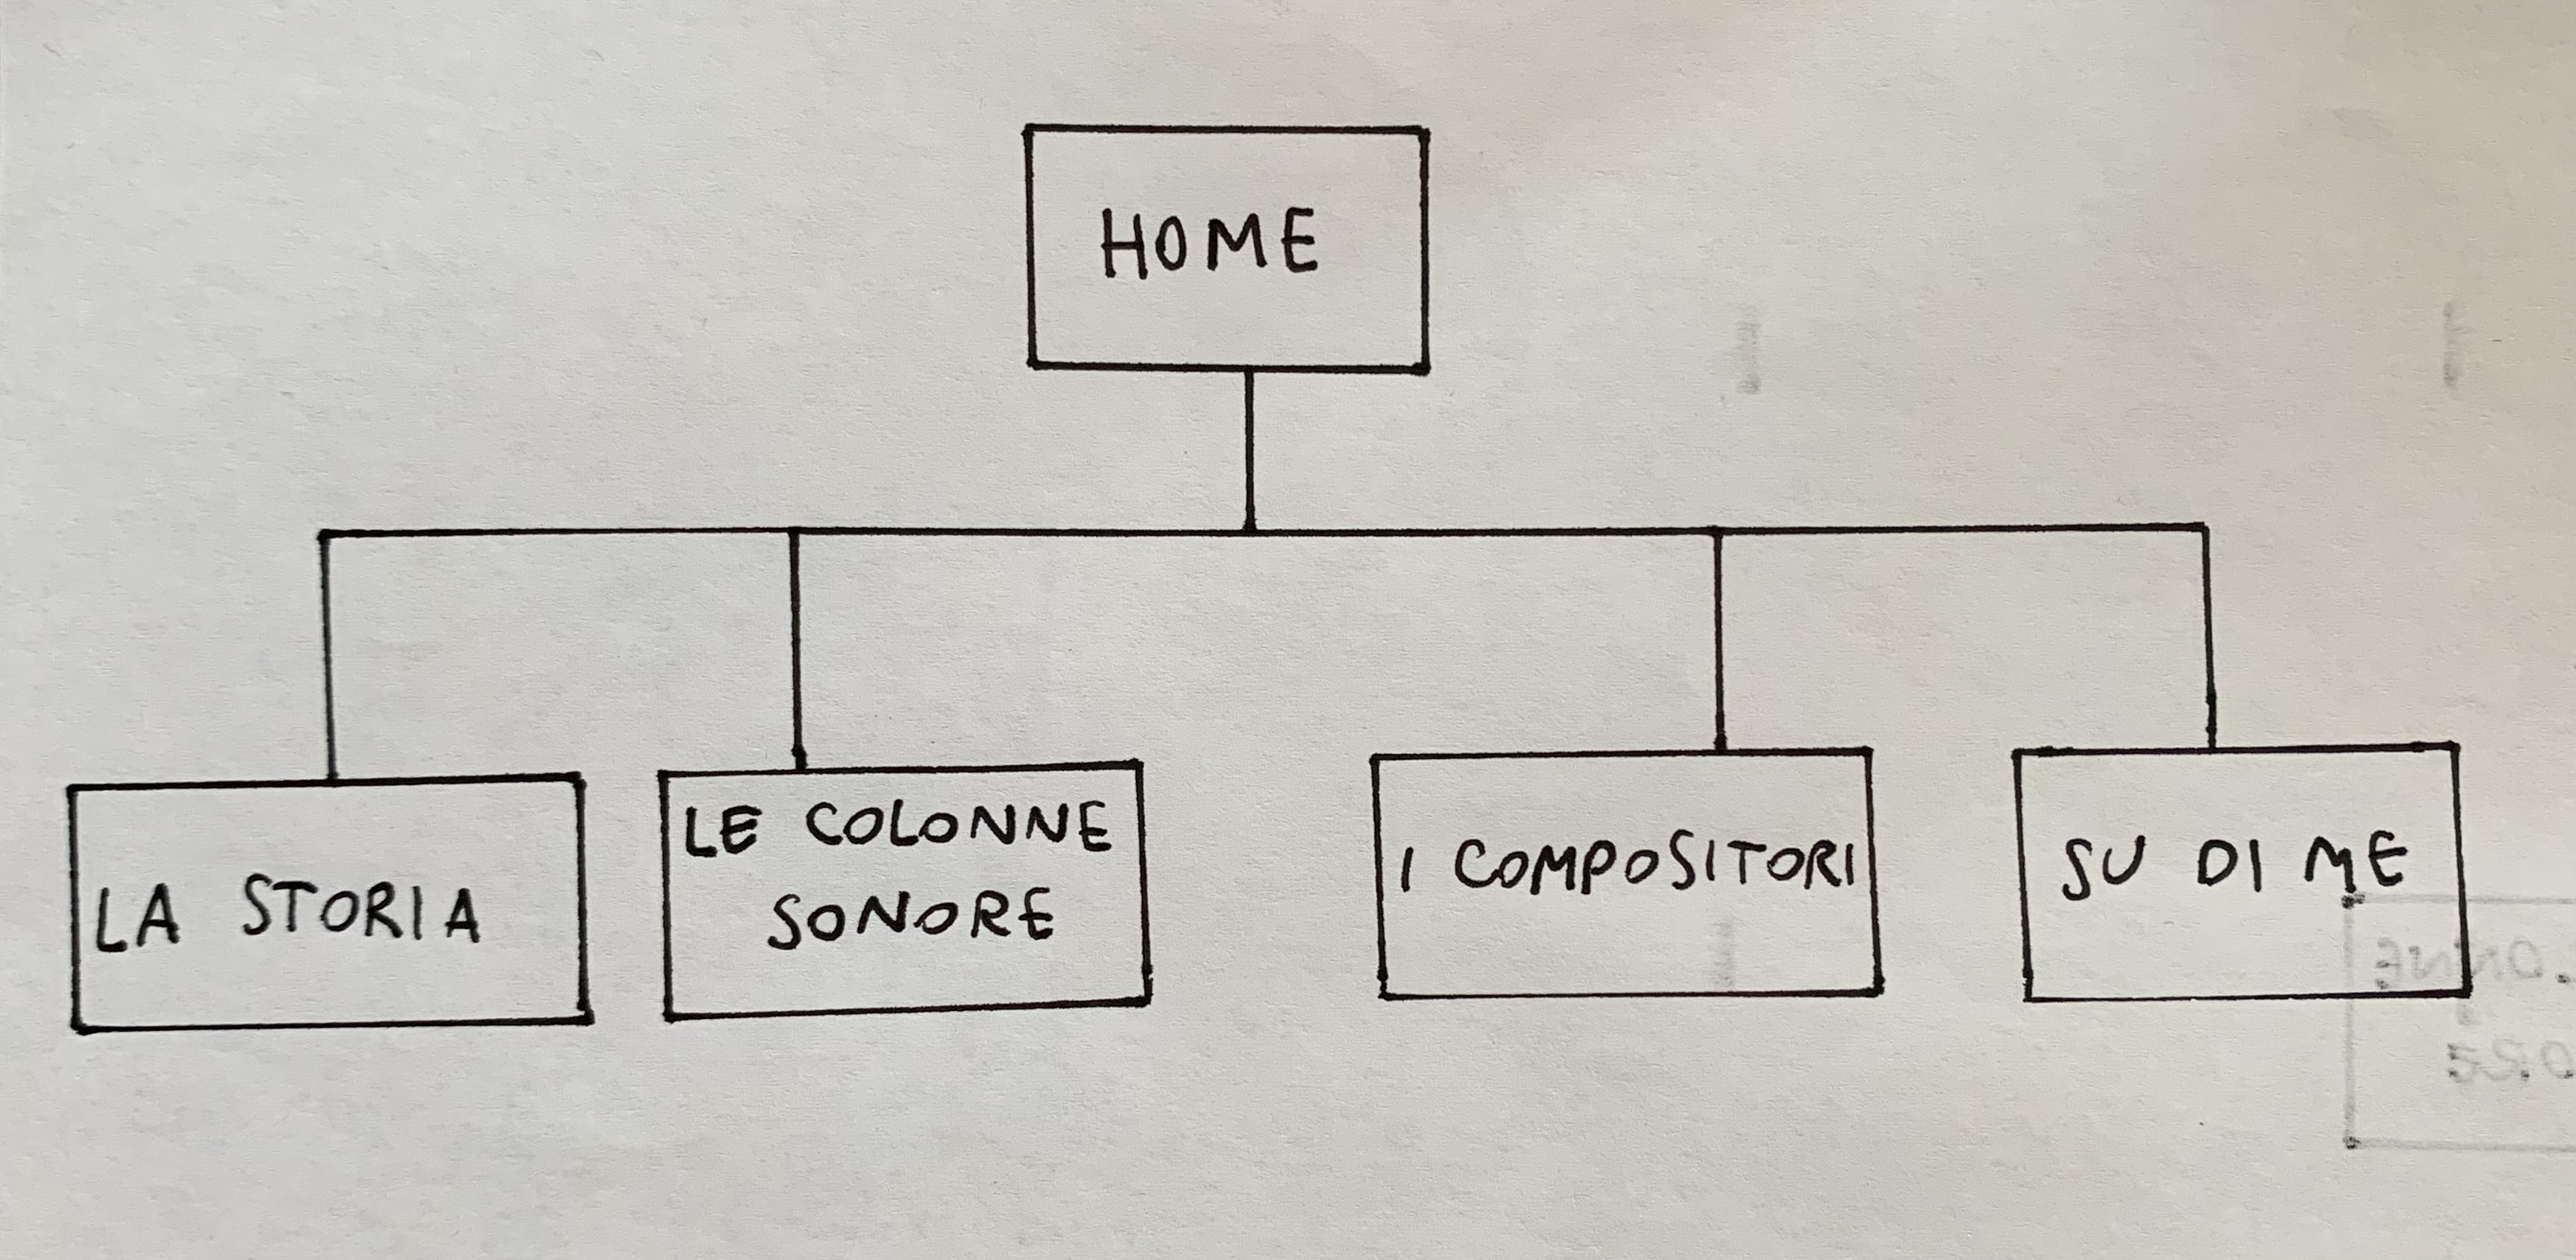 HOME
LA STORIA
LE COLONNE
SONORE
I COMPOSITORI
SU DI ME